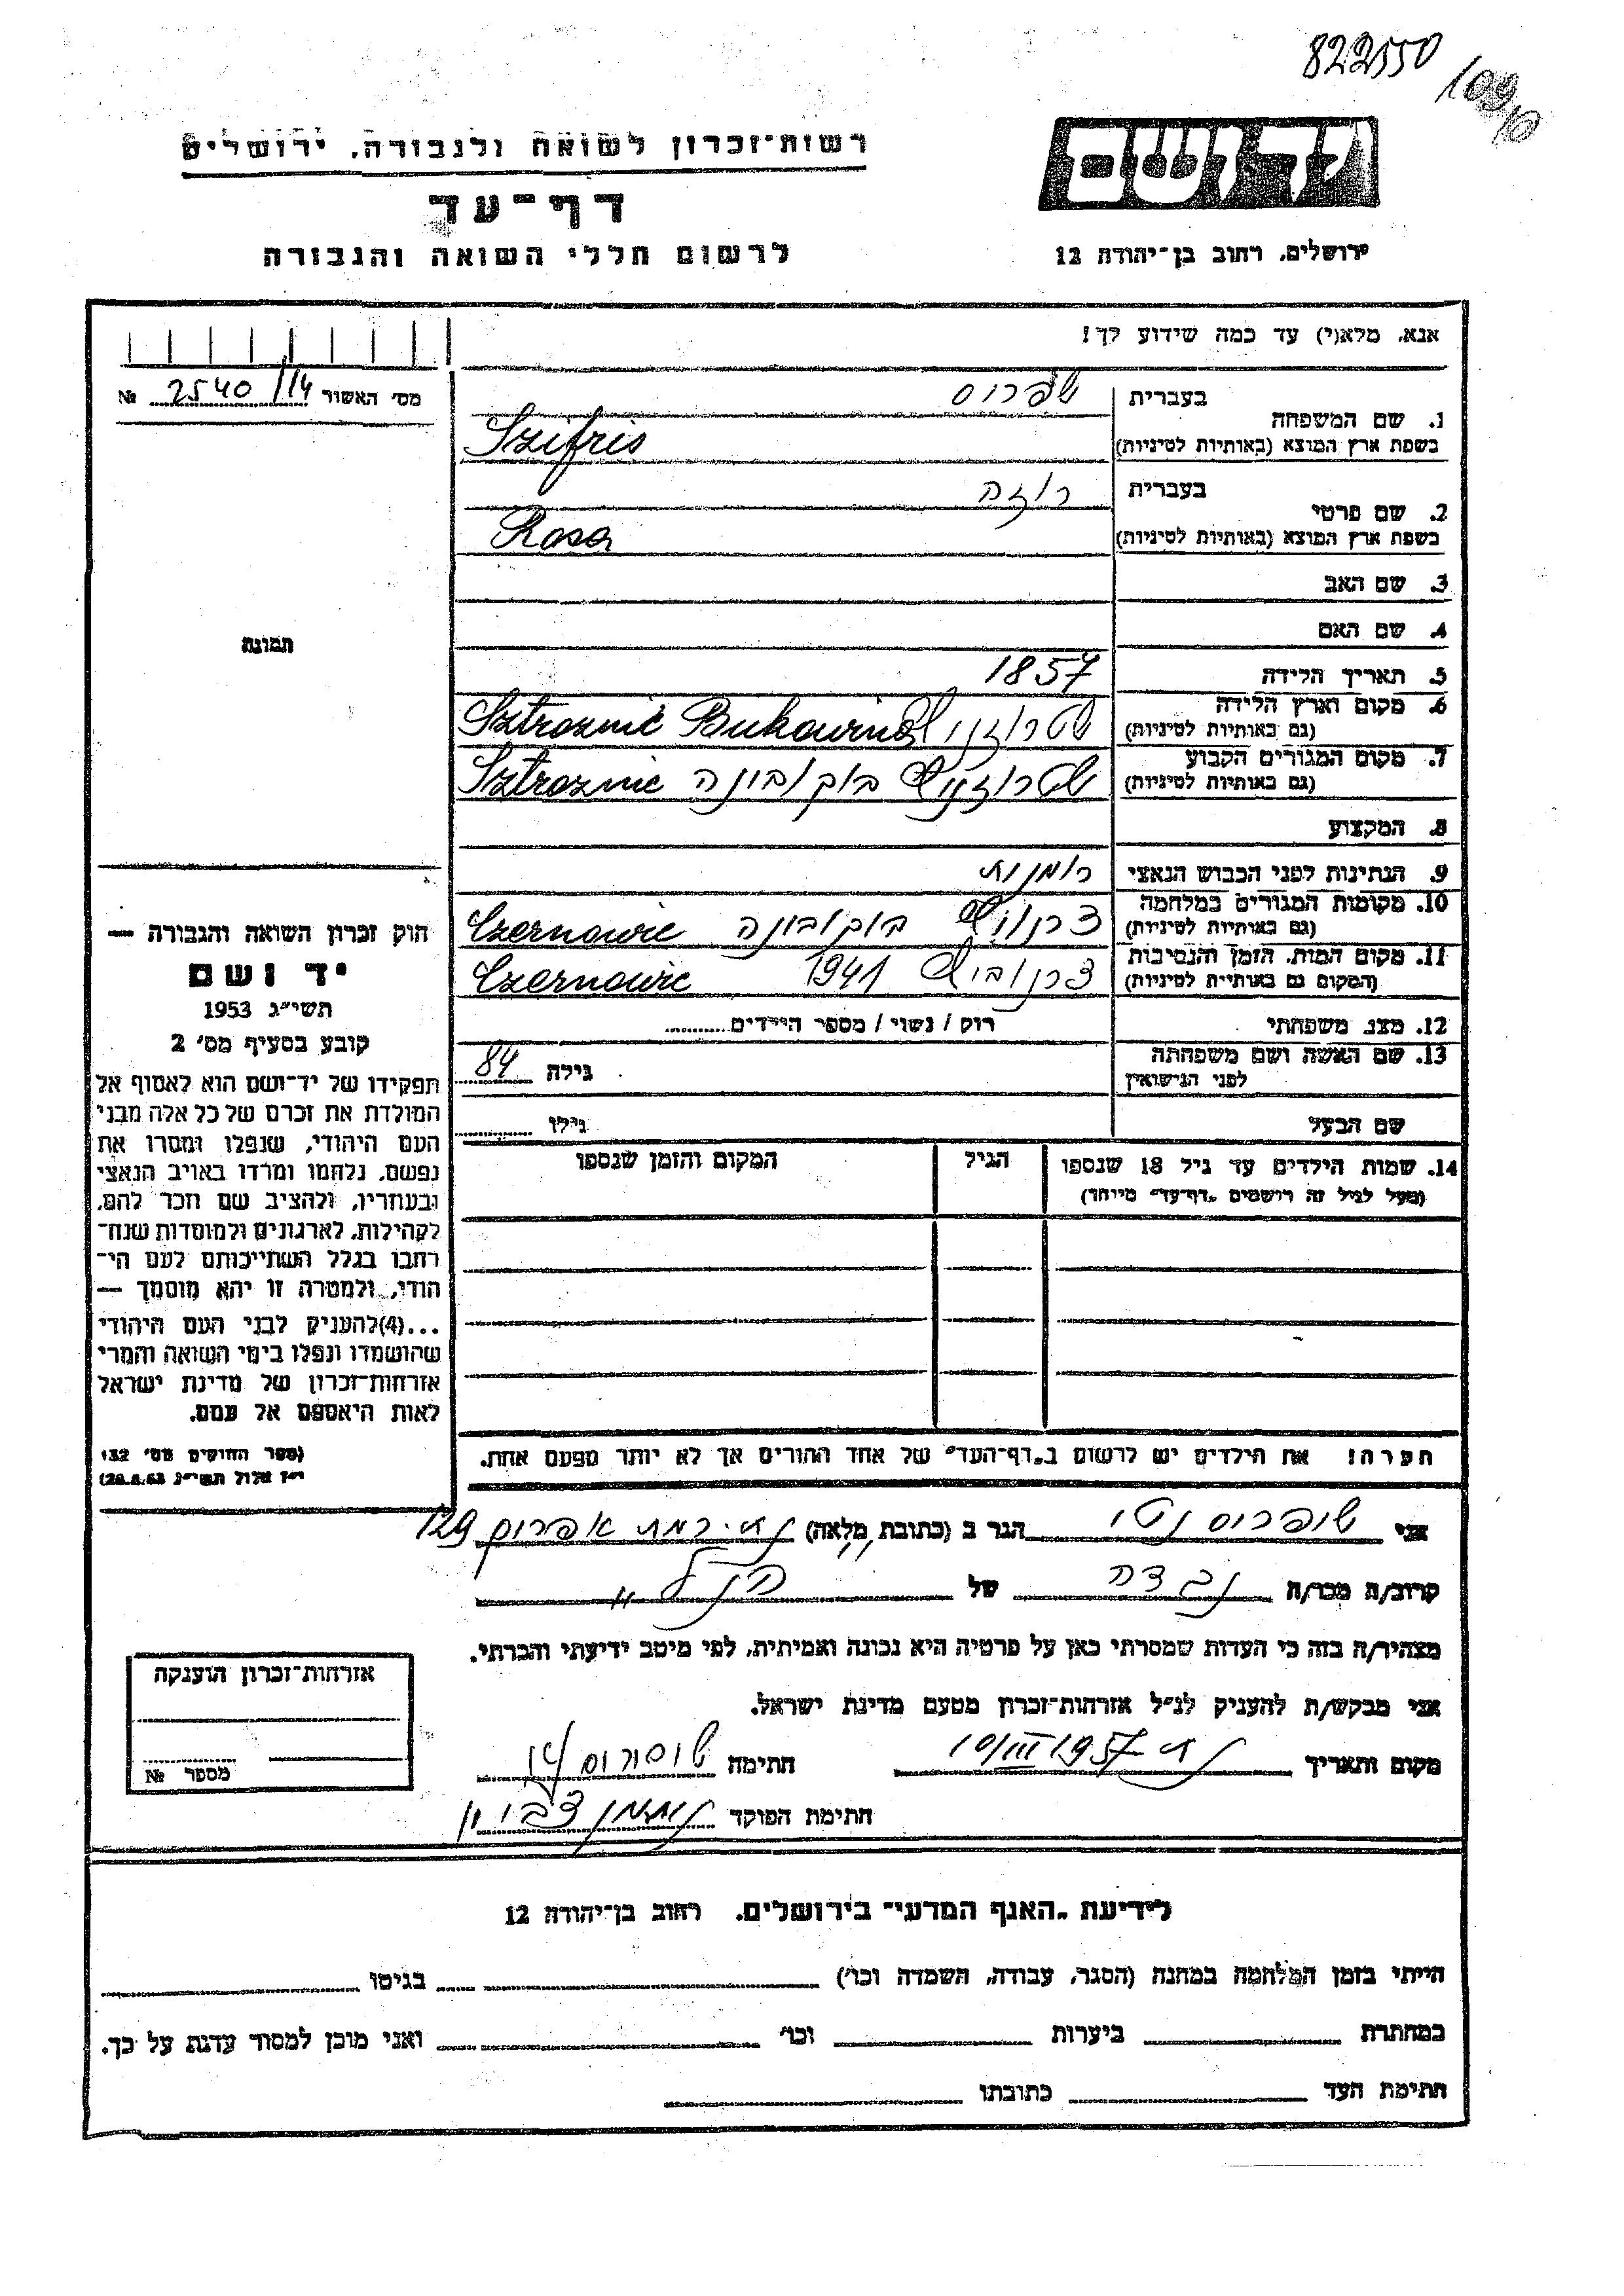 822550
109/10
ידושם
ירושלים, רחוב בן־יהודה 12
רשות־זכרון לשואה ולגבורה, ירושלים
דף־עד
לרשום חללי השואה והגבורה
אנא, מלא(י) עד כמה שידוע לך!
מס' האשור 2540/14 №
1. שם המשפחה
בעברית שפרוס
בשפת ארץ המוצא (באותיות לטיניות) Szifris
2. שם פרטי
בעברית רוזה
בשפת ארץ המוצא (באותיות לטיניות) Rosa
3. שם האב
4. שם האם
5. תאריך הלידה 1857
6. מקום וארץ הלידה
(גם באותיות לטיניות) Sztroznic Bukowina
7. מקום המגורים הקבוע
(גם באותיות לטיניות) שטרוזניץ בוקובינה Sztroznic
8. המקצוע
9. הנתינות לפני הכבוש הנאצי רומנית
10. מקומות המגורים במלחמה
(גם באותיות לטיניות) צרנוביץ בוקובינה Czernowic
11. מקום המות, הזמן והנסיבות
(המקום גם באותיות לטיניות) צרנוביץ 1941 Czernowic
12. מצב משפחתי רוק / נשוי / מספר הילדים
13. שם האשה ושם משפחתה
לפני הנישואין גילה 84
שם הבעל גילו
14. שמות הילדים עד גיל 18 שנספו
(מעל לגיל זה רושמים „דף־עד" מיוחד)
הגיל
המקום והזמן שנספו
הערה! את הילדים יש לרשום ב„דף־העד" של אחד ההורים אך לא יותר מפעם אחת.
תמונה
חוק זכרון השואה והגבורה —
יד ושם
תשי״ג 1953
קובע בסעיף מס' 2
תפקידו של יד־ושם הוא לאסוף אל
המולדת את זכרם של כל אלה מבני
העם היהודי, שנפלו ומסרו את
נפשם, נלחמו ומרדו באויב הנאצי
ובעוזריו, ולהציב שם וזכר להם,
לקהילות, לארגונים ולמוסדות שנח־
רבו בגלל השתייכותם לעם הי־
הודי, ולמטרה זו יהא מוסמך —
...(4)להעניק לבני העם היהודי
שהושמדו ונפלו בימי השואה והמרי
אזרחות־זכרון של מדינת ישראל
לאות היאספם אל עמם.
(ספר החוקים מס' 132
י״ז אלול תשי״ג 28.8.53)
אני שופרוס נטי הגר ב (כתובת מלאה) רמת אפרים 129
קרוב/ה מכר/ה נכדה של הנ״ל
מצהיר/ה בזה כי העדות שמסרתי כאן על פרטיה היא נכונה ואמיתית, לפי מיטב ידיעתי והכרתי.
אני מבקש/ת להעניק לנ״ל אזרחות־זכרון מטעם מדינת ישראל.
מקום ותאריך 10/III 1957 חתימה
חתימת הפוקד
אזרחות־זכרון הוענקה
מספר №
לידיעת „האגף המדעי" בירושלים, רחוב בן־יהודה 12
הייתי בזמן המלחמה במחנה (הסגר, עבודה, השמדה וכו') בגיטו
במחתרת ביערות וכו' ואני מוכן למסור עדות על כך.
חתימת העד כתובתו